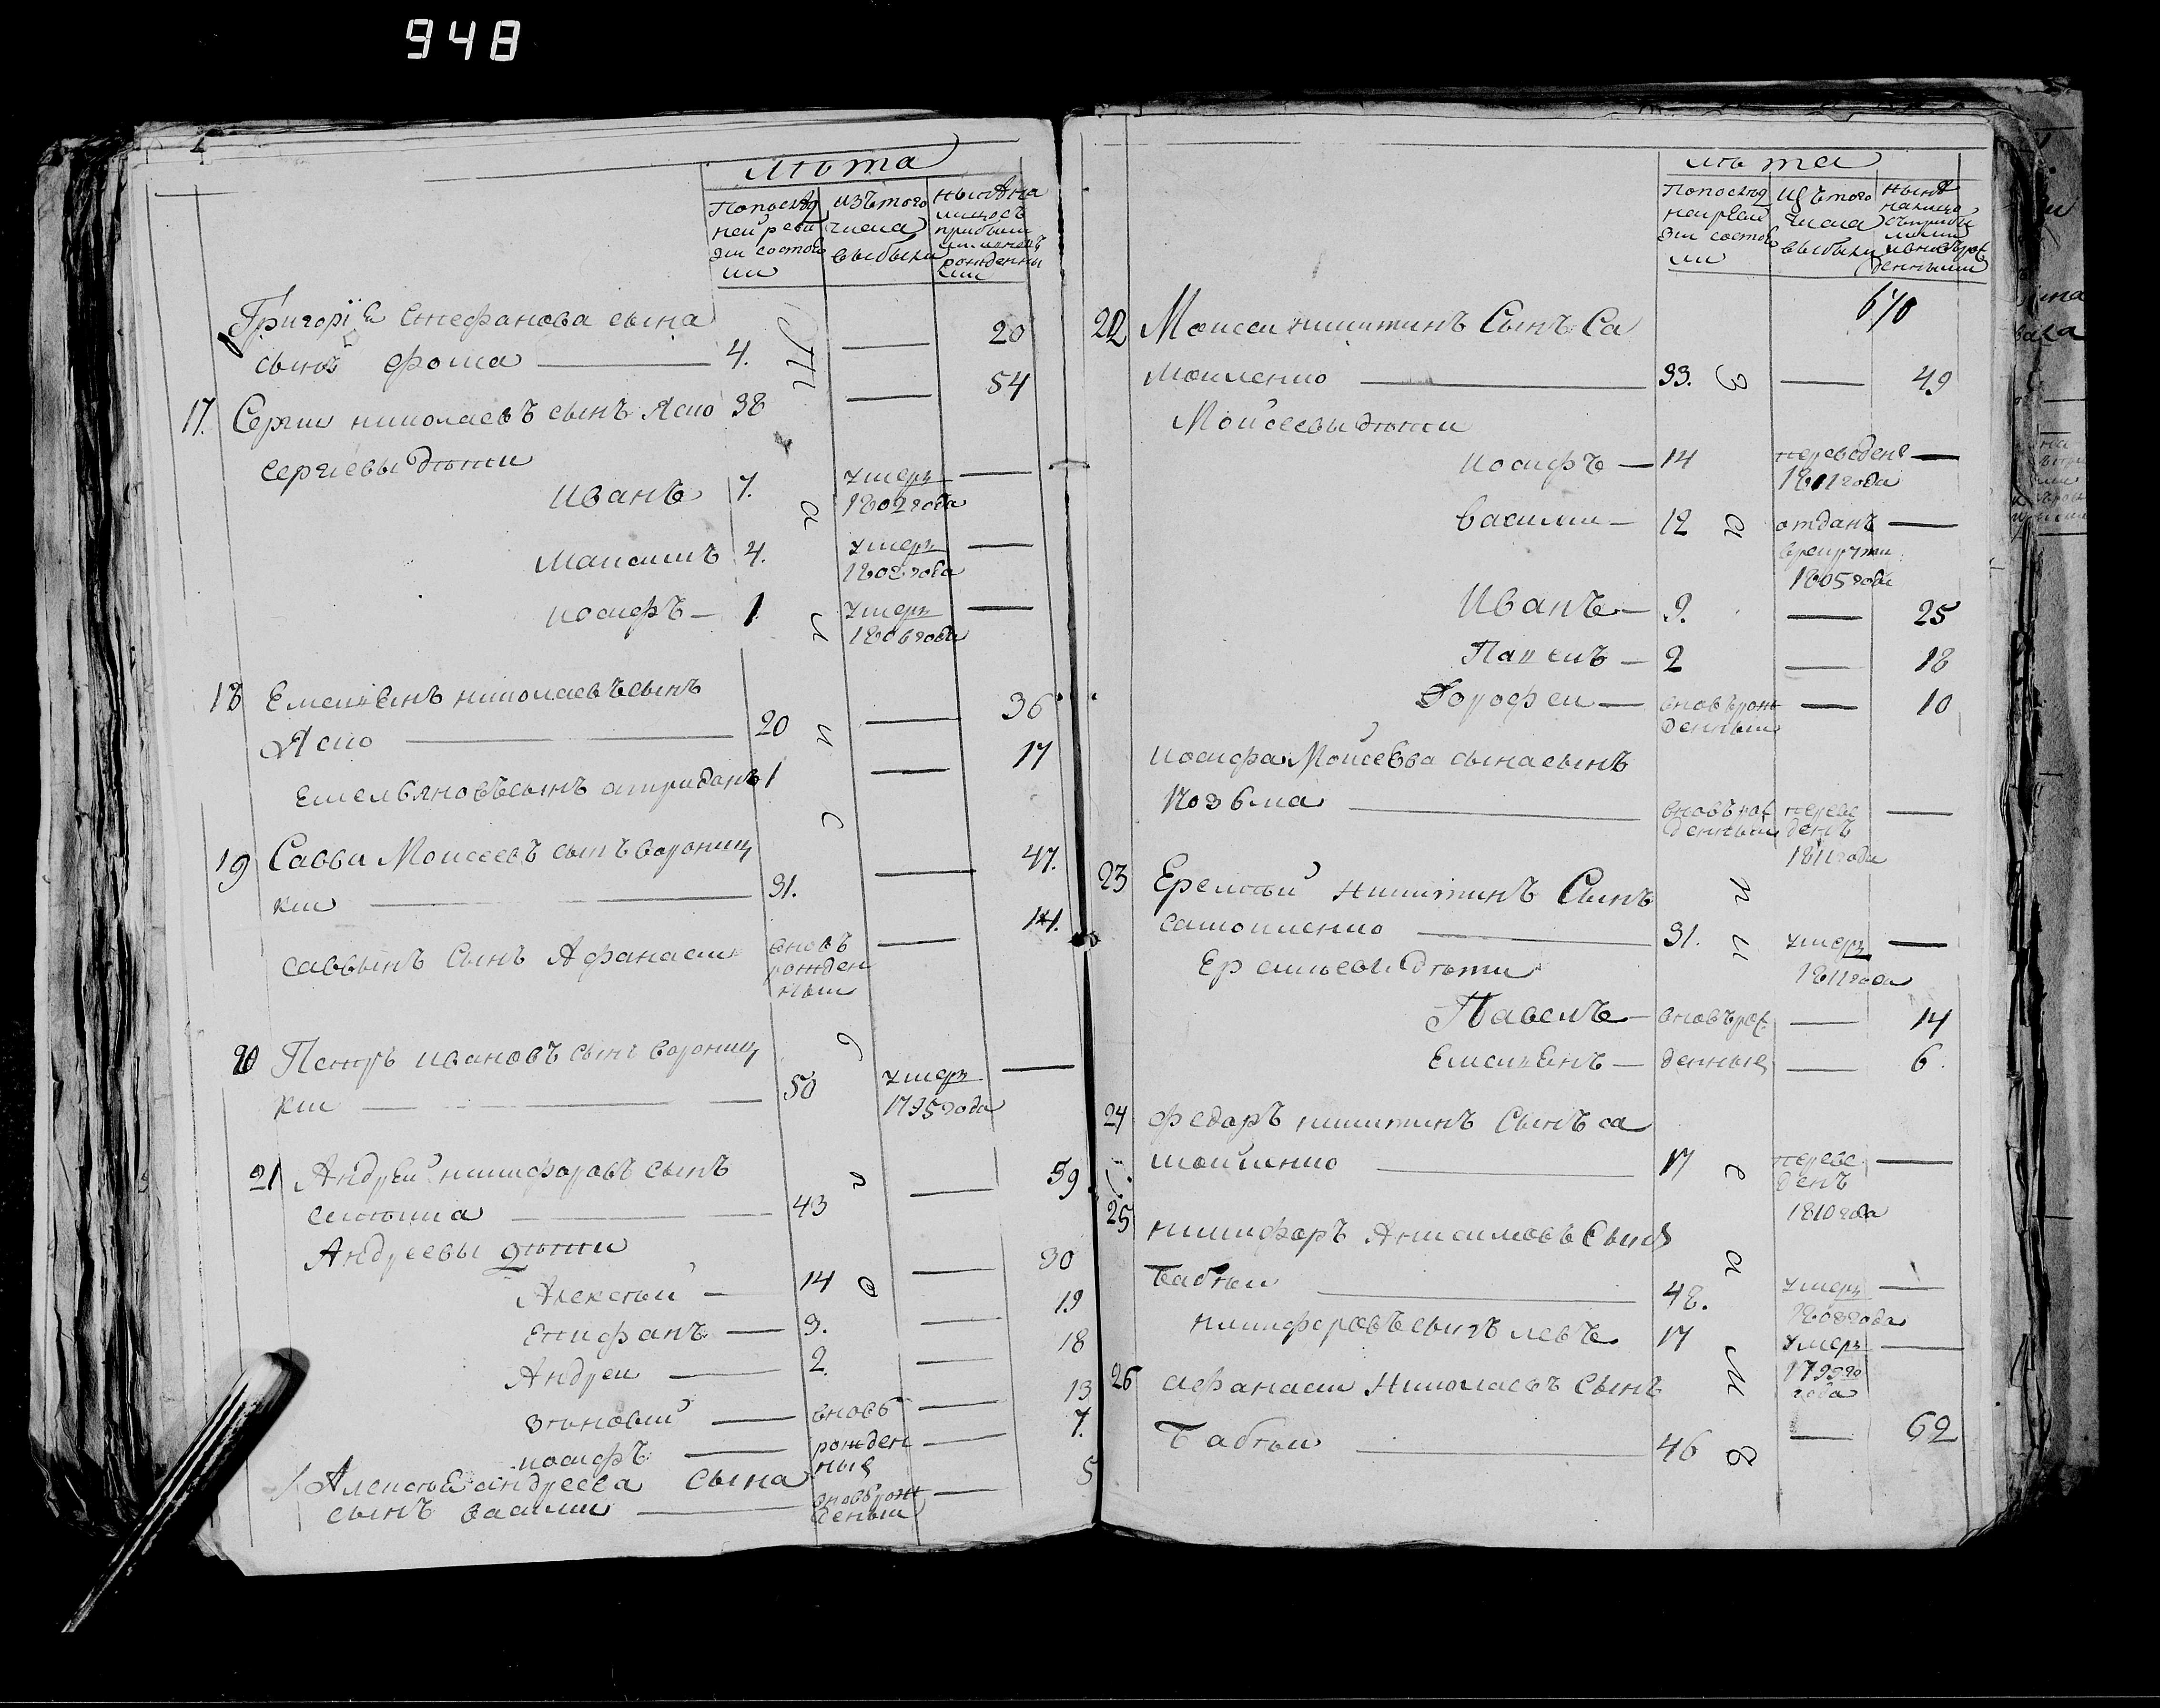 948
лѣта
По послѣд
ней реви
зіи состоя
ли
изъ того
числа
выбыли
нынѣ на
лицо съ
прибыли
рожденны
ми
Григорія Стефанова сына
сынъ фома — 4. — 20
17. Сергий николаевъ сынъ Ясно 38 — 54
сергіевы дѣти
иванъ 7. умеръ —
1802 года
4. умеръ —
1802 года
иосифъ — 1 умеръ —
1806 года
18 Емельянъ николаевъ сынъ
Ясно — 20 — 36
Емельяновъ сынъ 1 — 17
19 Савва Моисеевъ сынъ ворониц
кии — 31. — 47.
саввынъ сынъ Афанасии вновь — 14.
рожден
ныи
20 Петръ ивановъ сынъ ворониц
кии — 50 умеръ —
1795 года
21 Андрей никифоровъ сынъ
43 — 59
Андреевы дѣти
Алексѣй — 14 — 30
епифанъ — 3. — 19
Андреи — 2. — 18
зѣновий — вновь — 13
иосифъ — рожден — 7.
ныя
Алексѣя андреева сына 5
сынъ василии — вновь рож —
деныи
лѣта
По послѣд
ней реви
зіи состоя
ли
изъ того
числа
выбыли
нынѣ
налицо
съ прибы
лыми
и вновь рож
денными
670
22 Моисеи никитинъ Сынъ Са
моиленко — 33. — 49
Мойсеевы дѣти
иосифъ — 14 переведенъ —
1811 года
василии — 12 отданъ —
в рекруты
1805 года
Иванъ — 9. — 25
Павелъ — 2 — 18
Дорофеи — вновь рож — 10
денныи
иосифа Мойсеева сына сынъ
Козьма — вновь рож переве —
денныи денъ
1811 года
23 Еремѣй никитинъ Сынъ
самоиленко — 31. умеръ —
1811 года
Еремѣевы дѣти
Павелъ — вновь рож — 14
Емельянъ — денныя — 6.
24 федоръ никитинъ Сынъ са
мойленко — 17 переве —
денъ
1810 года
25 никифоръ Анисимовъ Сынъ
бабѣи — 48. умеръ —
1808 года
никифоровъ сынъ левъ 17 умеръ —
1795 го
года
26 афанасии Николаевъ Сынъ
бабѣи — 46 — 62